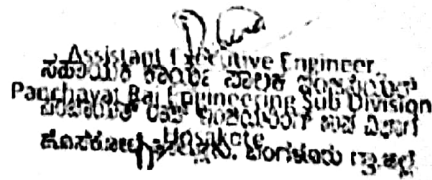 Assistant Executive Engineer
ಸಹಾಯಕ ಕಾರ್ಯ ಪಾಲಕ
Panchayat Raj Engineering Sub Division
ಪಂಚಾಯತ್ ರಾಜ್ ಉಪ ವಿಭಾಗ
Hosakote
ಹೊಸಕೋಟೆ ಬೆಂಗಳೂರು ಗ್ರಾ ಜಿಲ್ಲೆ